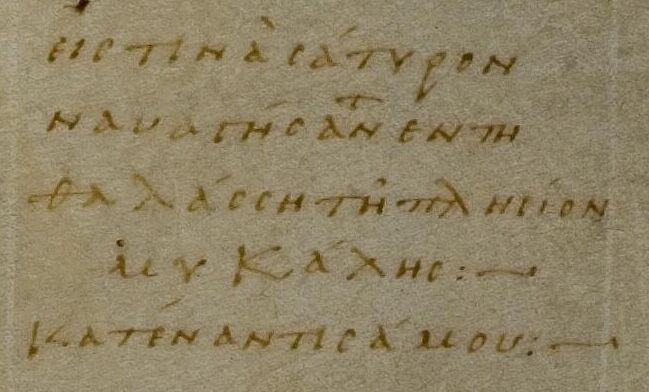 εἰς τινὰ σάτυρον
ναυαγήσαντ ἐν τῆ
θαλάσση τῆ πλησίον
μυκάλης:—
κατέναντι σάμου:—